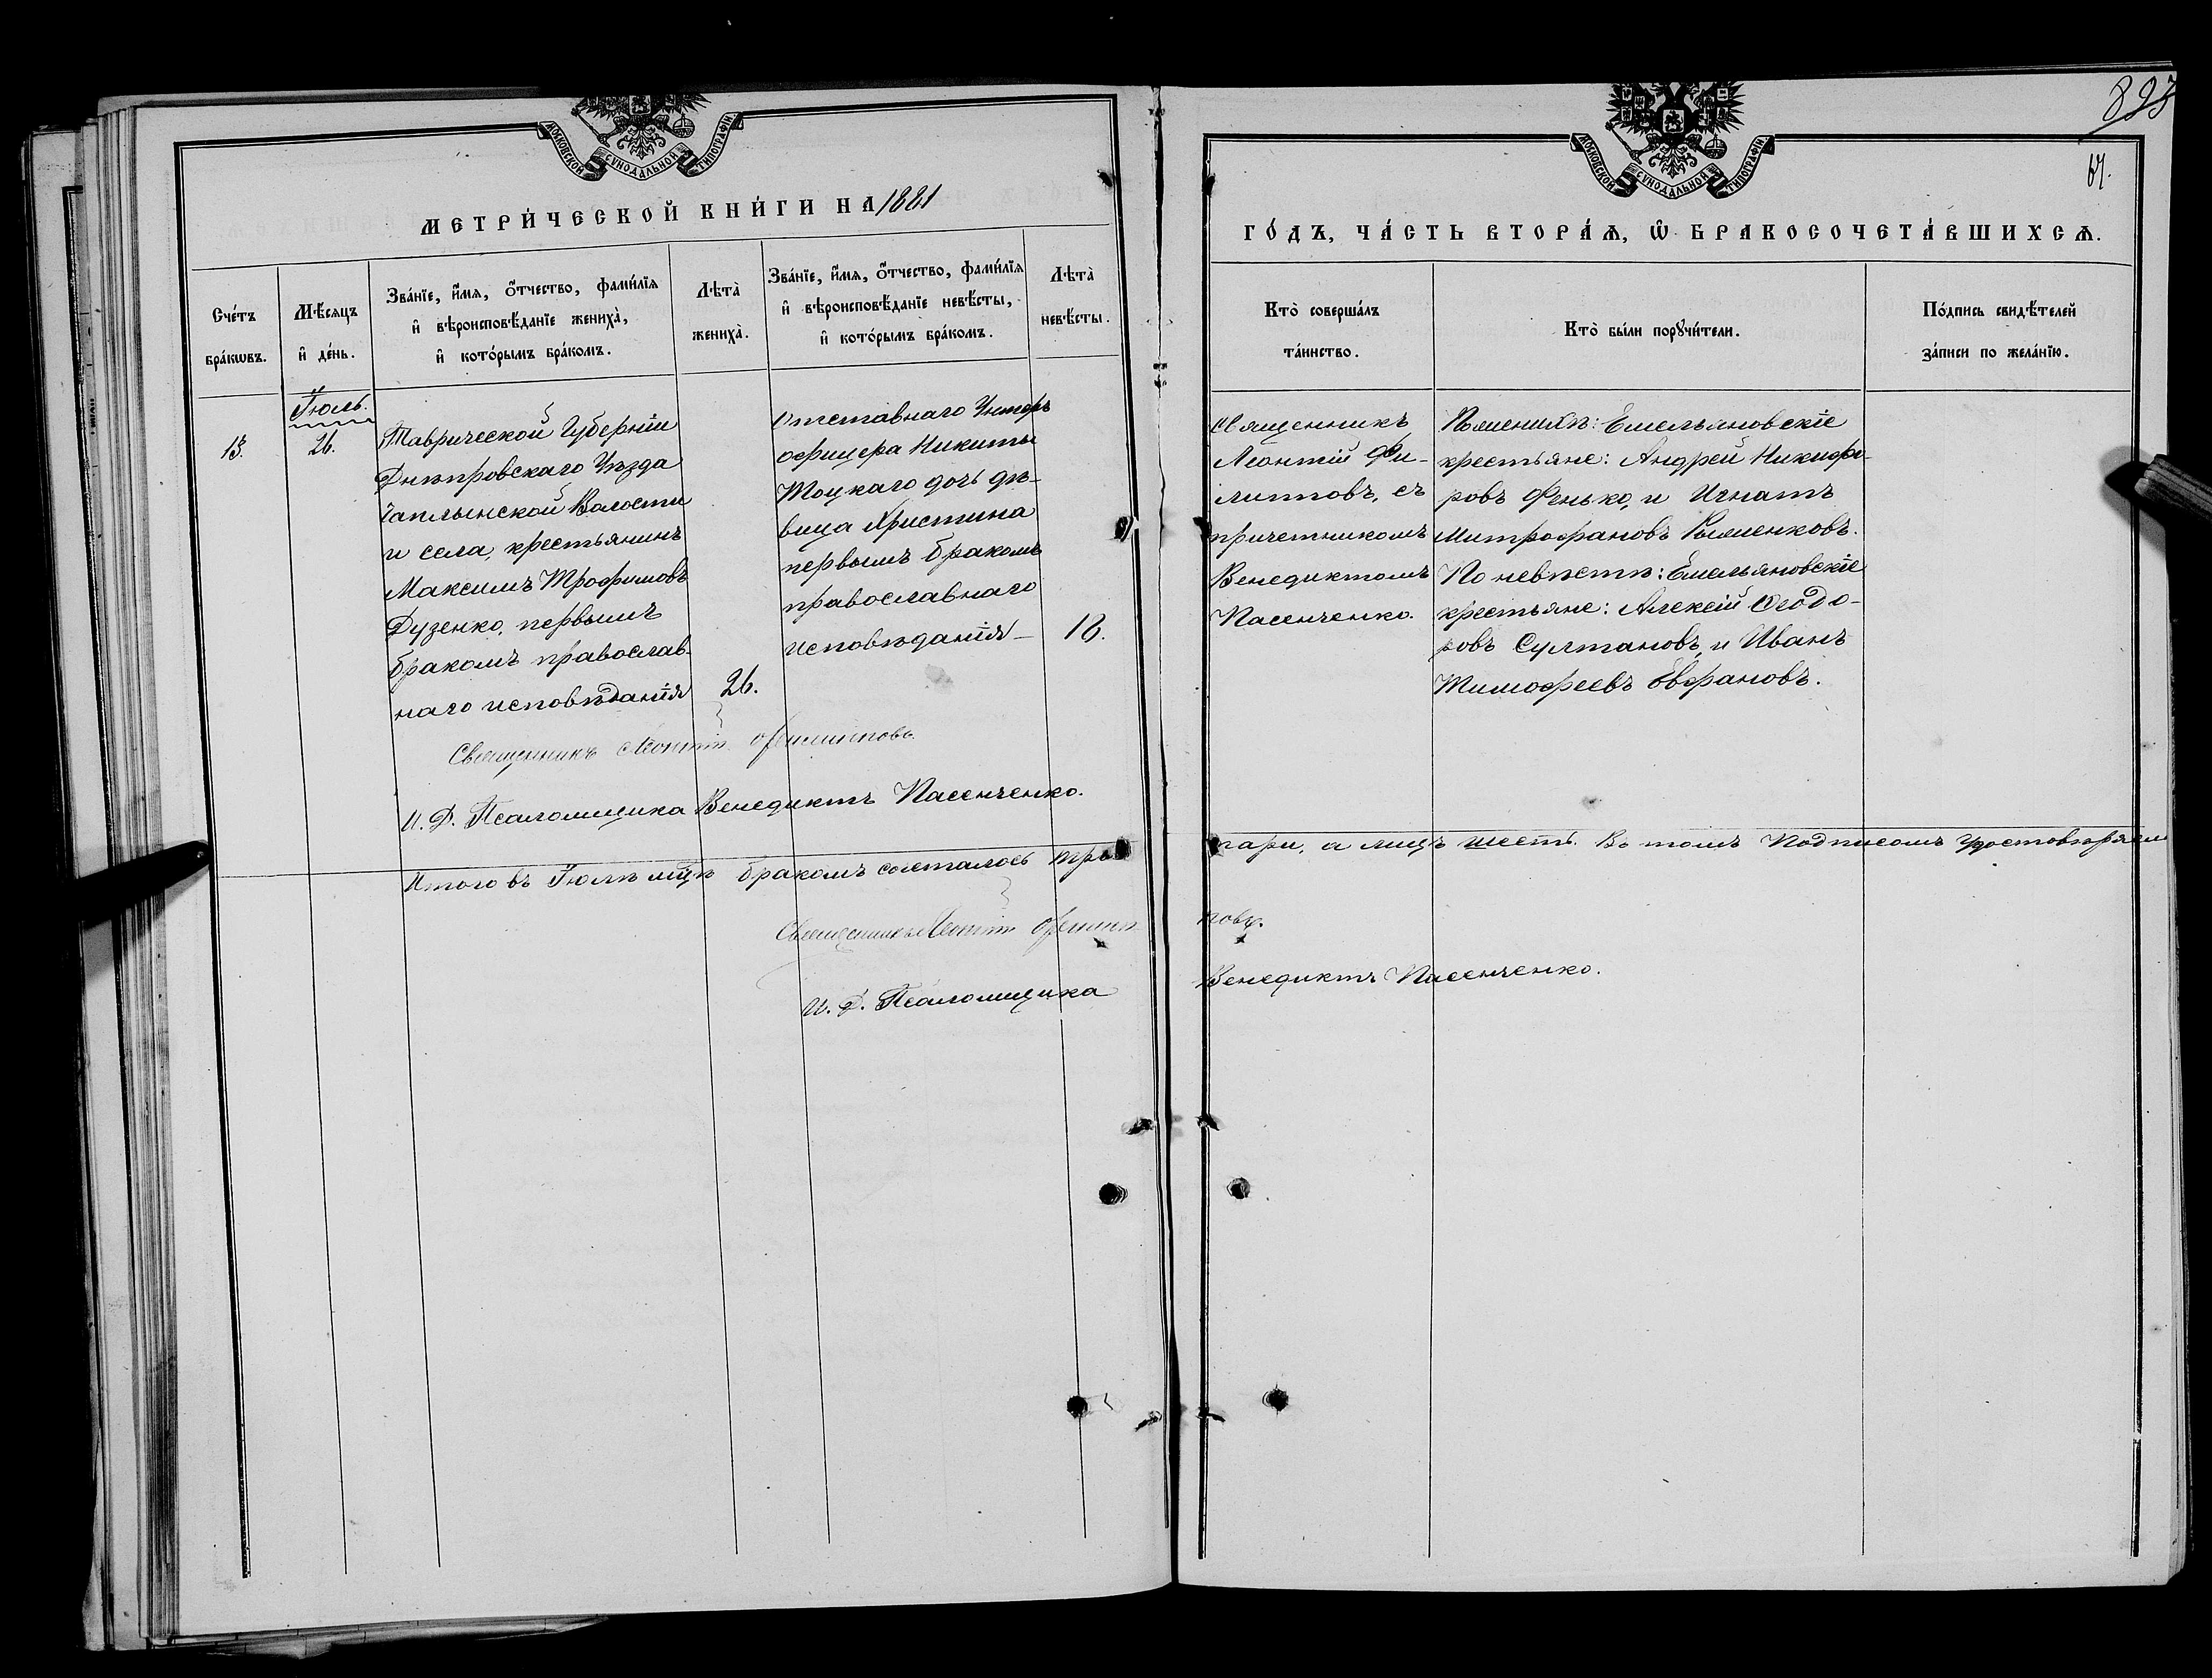 МОСКОВСКОЙ СѴНОДАЛЬНОЙ ТИПОГРАФІИ
МЕТРИ́ЧЕСКОЙ КНИ́ГИ НА 1881
Сче́тъ бра́кѡвъ.
Мѣ́сяцъ и҆ де́нь.
Зва́нїе, и҆́мѧ, ѻ҆́тчество, фами́лїѧ
и҆ вѣроисповѣ́данїе жениха̀,
и҆ кото́рымъ бра́комъ.
Лѣта̀ жениха̀.
Зва́нїе, и҆́мѧ, ѻ҆́тчество, фами́лїѧ
и҆ вѣроисповѣ́данїе невѣ́сты,
и҆ кото́рымъ бра́комъ.
Лѣта̀ невѣ́сты.
13.
Іюль.
26.
Таврической Губерніи
Днѣпровскаго Уѣзда
Чаплынской Волости
и села, крестьянинъ
Максимъ Трофимовъ
Дузенко, первымъ
бракомъ православ-
наго исповѣданія
26.
Отставнаго Унтеръ
офицера Никиты
Тоцкаго дочь дѣ-
вица Христина
первымъ бракомъ
православнаго
исповѣданія
18.
Священникъ Леонтій Филипповъ.
И. Д. Псаломщика Венедиктъ Пасенченко.
Итого въ Іюлѣ мцѣ бракомъ сочеталось три
Священникъ Леонтій Филип-
И. Д. Псаломщика
МОСКОВСКОЙ СѴНОДАЛЬНОЙ ТИПОГРАФІИ
67.
ГО́ДЪ, ЧА́СТЬ ВТОРА́Ѧ, Ѽ БРАКОСОЧЕТА́ВШИХСѦ.
Кто̀ соверша́лъ
та́инство.
Кто̀ бы́ли порꙋчи́тели.
По́дпись свидѣ́телей
за́писи по жела́нїю.
Священникъ
Леонтій Фи-
липповъ, съ
причетникомъ
Венедиктомъ
Пасенченко.
По женихѣ: Емельяновскіе
крестьяне: Андрей Никифо-
ровъ Фенько, и Игнатъ
Митрофановъ
По невѣстѣ: Емельяновскіе
крестьяне: Алексій Ѳеодо-
ровъ Султановъ, и Иванъ
Тимофеевъ Евфановъ.
пари, а лицъ шесть. Въ томъ Подписомъ Удостовѣряем
повъ.
Венедиктъ Пасенченко.